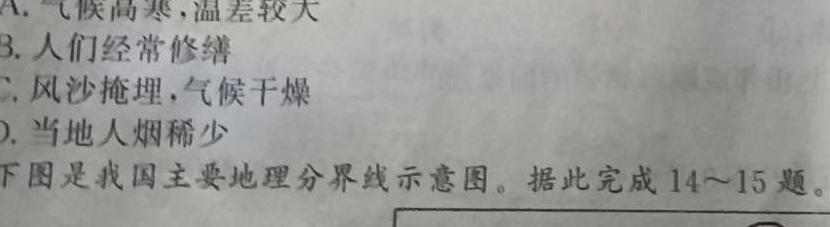 A. 气候高寒，温差较大
B. 人们经常修缮
C. 风沙掩埋，气候干燥
D. 当地人烟稀少
下图是我国主要地理分界线示意图。据此完成 14～15 题。